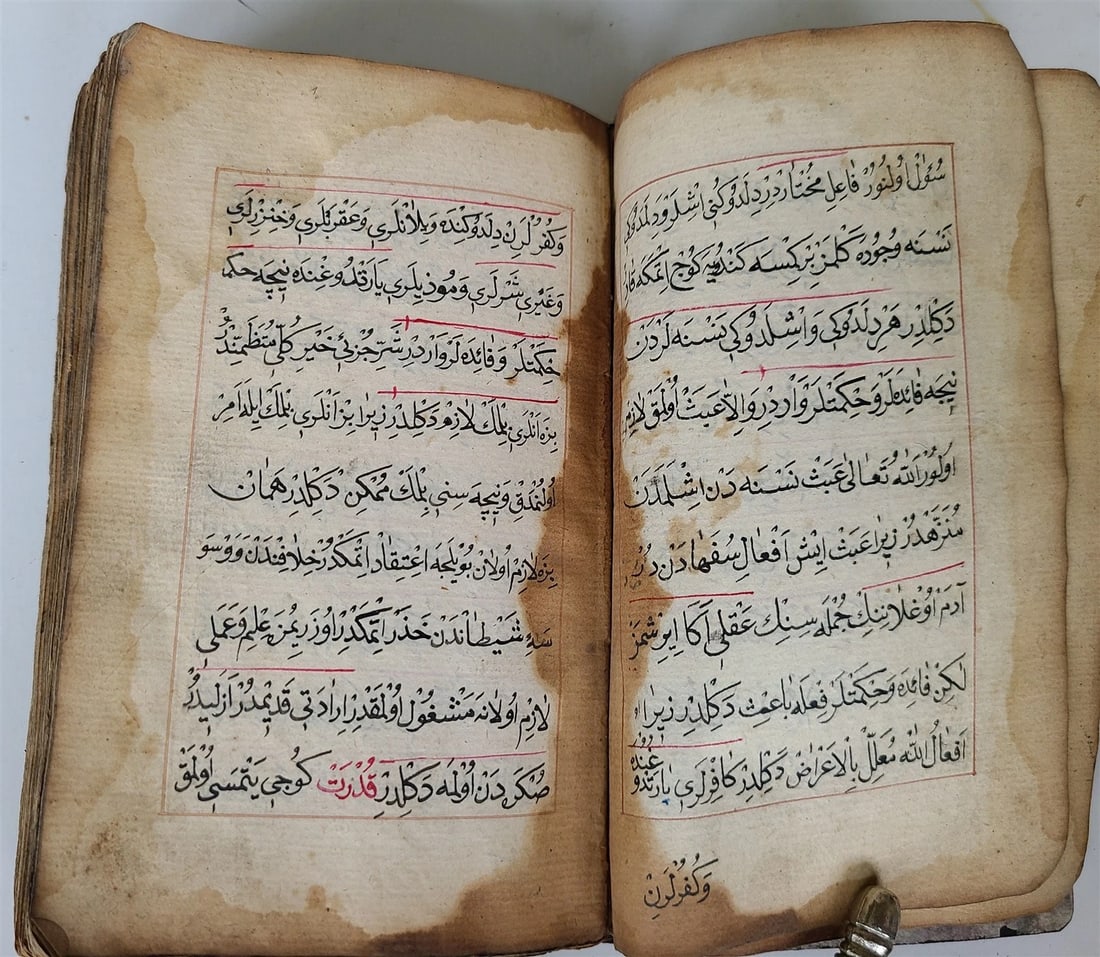 سؤال اولنور فاعل مختاردر دلدوكنی اشلر و دلمدوكی
نسنه وجوده كلمز بر كسنه كندویه كوج اتمكه قادر
دكلدر هر دلدوكی و اشلدوكی نسنه لردن
نیچه فائده لر و حكمتلر واردر والا عبث اولمق لازم
اولور الله تعالی عبث نسنه دن اشلمدن
منزهدر زیرا عبث ایش افعال سفهادن در
آدم اوغلاننك جمله سنك عقلی اكا ایرشمز
لكن فائده و حكمتلر فعله باعث دكلدر زیرا
افعال الله معلل بالاعراض دكلدر كافرلری یارتدوغنده
وكفرلرن
وكفرلرن دلدوكنده و یلانلری و عقربلری و خنزرلری
و غیری شرلری و موذیلری یارتدوغنده نیچه
حكمتلر و فائده لر واردر شر جزئی خیر كلی متظمندر
بزه انلری بلمك لازم دكلدر زیرا بز انلری بلمك ایله امر
اولنمدق و نیچه سنی بلمك ممكن دكلدر همان
بزه لازم اولان بویلجه اعتقاد اتمكدر خلافندن و وسو
سهٔ شیطاندن حذر اتمكدر اوزریمزه علم و عملی
لازم اولانه مشغول اولمقدر ارادتی قدیمدر ازلیدر
صكره دن اولمه دكلدر قدرت كوجی یتمسی اولمق